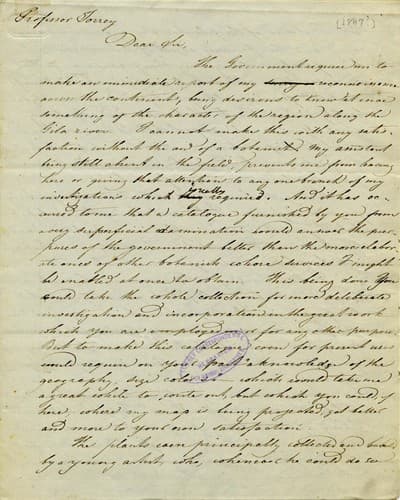 Professor Torrey
[1847?]
Dear Sir,
The Government requires me to
make an immediate report of my reconnoissance
across the continent, being desirous to know at once
something of the character of the region along the
Gila river. I cannot make this with any satis-
faction without the aid of a botanist. My assistant
being still absent in the field, prevents me from being
here or giving that attention to any one branch of my
investigations which really required. And it has oc-
curred to me that a catalogue furnished by you from
a very superficial examination would answer the pur-
poses of the government better than the more elabor-
ate ones of other botanists whose services I might
be enabled at once to obtain. This being done you
could take the whole collection for more deliberate
investigation and incorporation in the great work
which you are employed or for any other purpose.
But to make this even for present use
would require on your part a knowledge of the
geography, which would take me
a great while to write out, but which you could get
here, where my map is being projected, get better
and more to your own satisfaction.
The plants were principally collected and
by a young artist, who, whenever he could do so